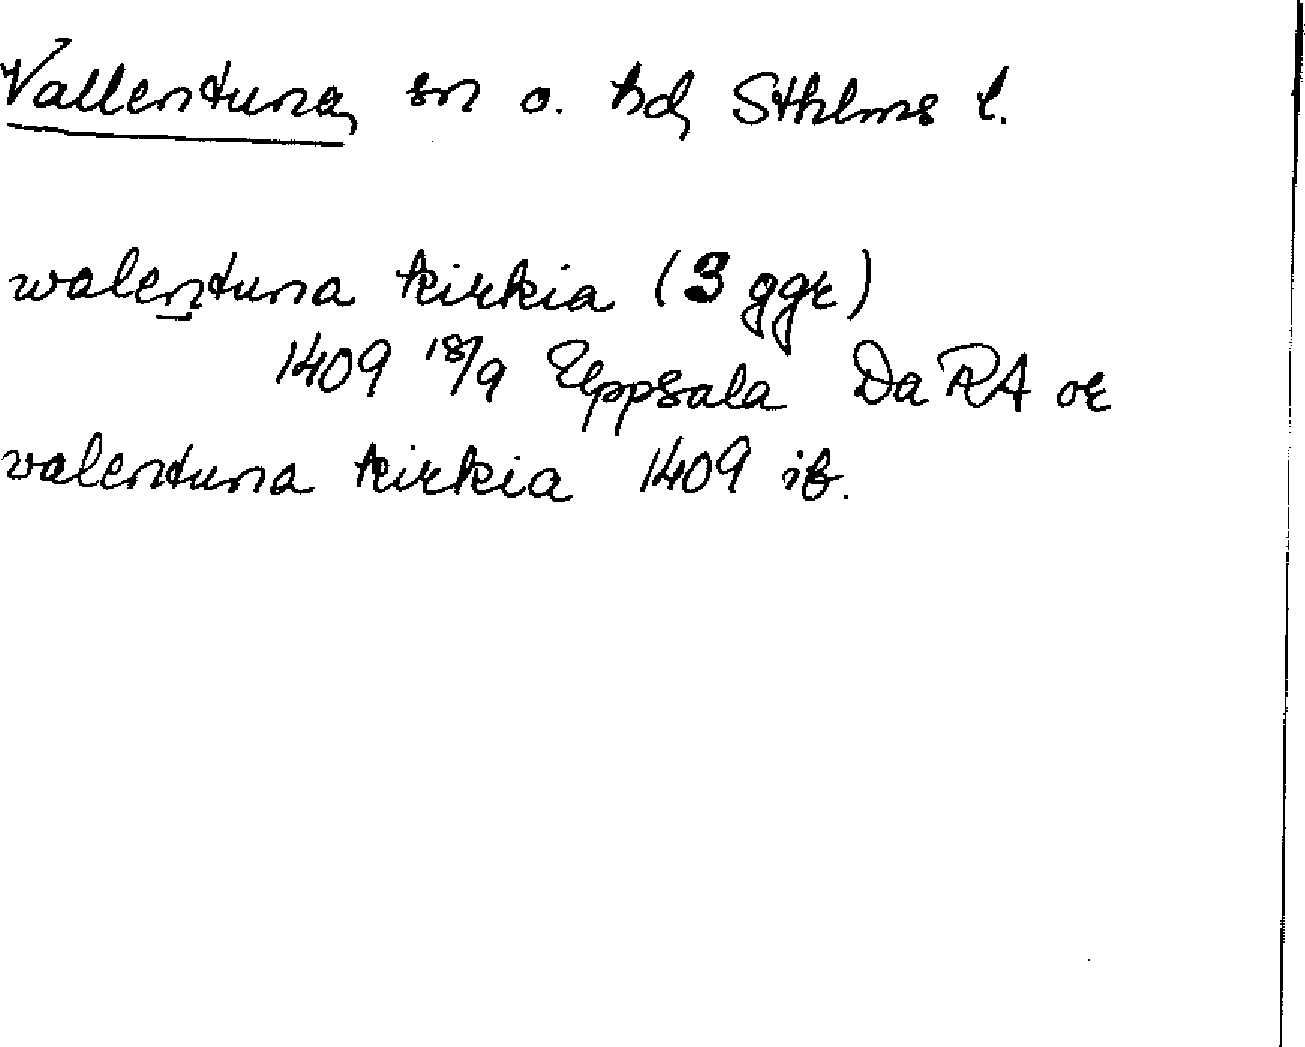 Vallentuna, sn o. hd, Sthlms l.
walentuna kirkia (3 ggr)
1409 18/9 Uppsala Da RA or
valentuna kirkia 1409 ib.